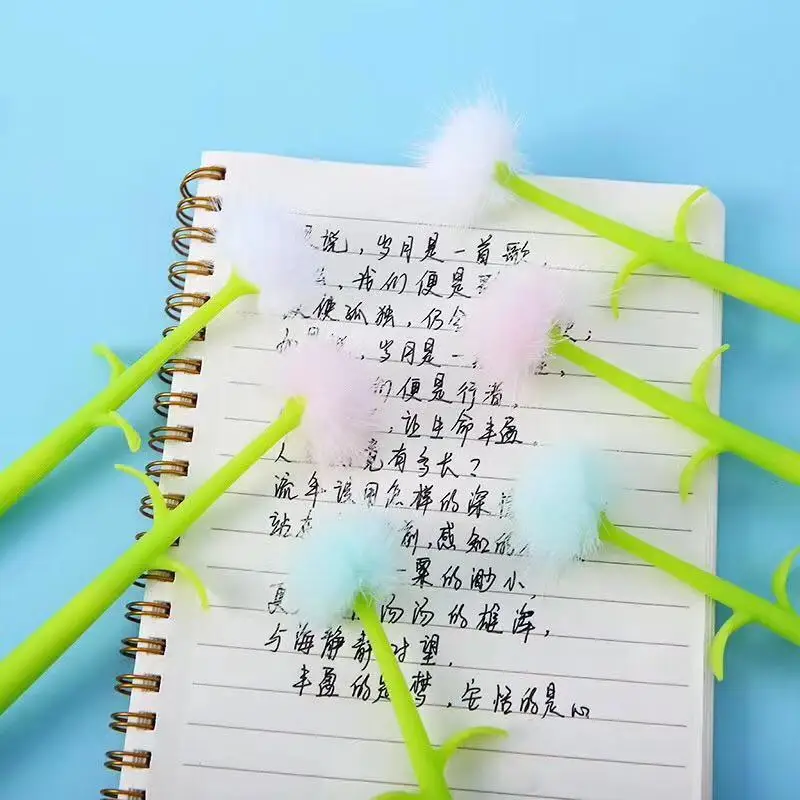 说，岁月是一首歌，
，我们便是
使孤独，仍
，岁月是一
们便是行者，
，让生命丰盈。
人 竟有多长？
流年 该用怎样的深
站在 前，感知的
一粟的渺小，
汤汤的雄浑，
与海静静对望，
丰盈的是梦，安恬的是心